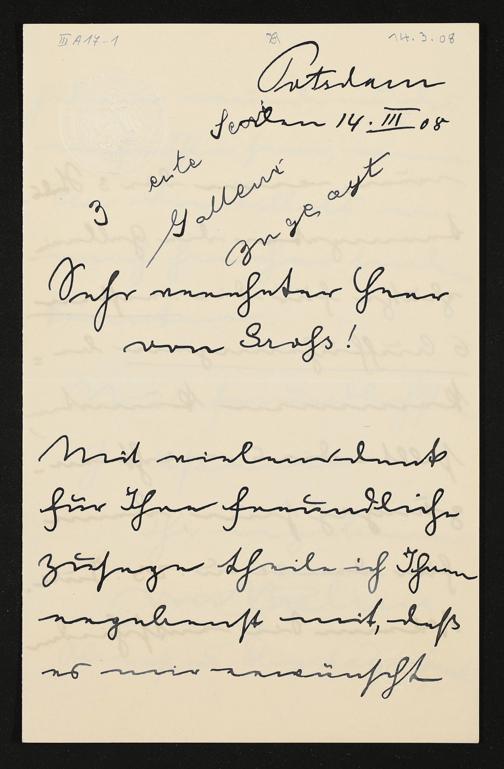 III A 17-1
14.3.08
Potsdam
14. III 08
3 erste
Gallerie
zugesagt
Sehr verehrter Herr
von Groß!
Mit vielem dank
für Ihre freundliche
zusage theile ich Ihnen
ergebenst mit, daß
es mir erwünscht